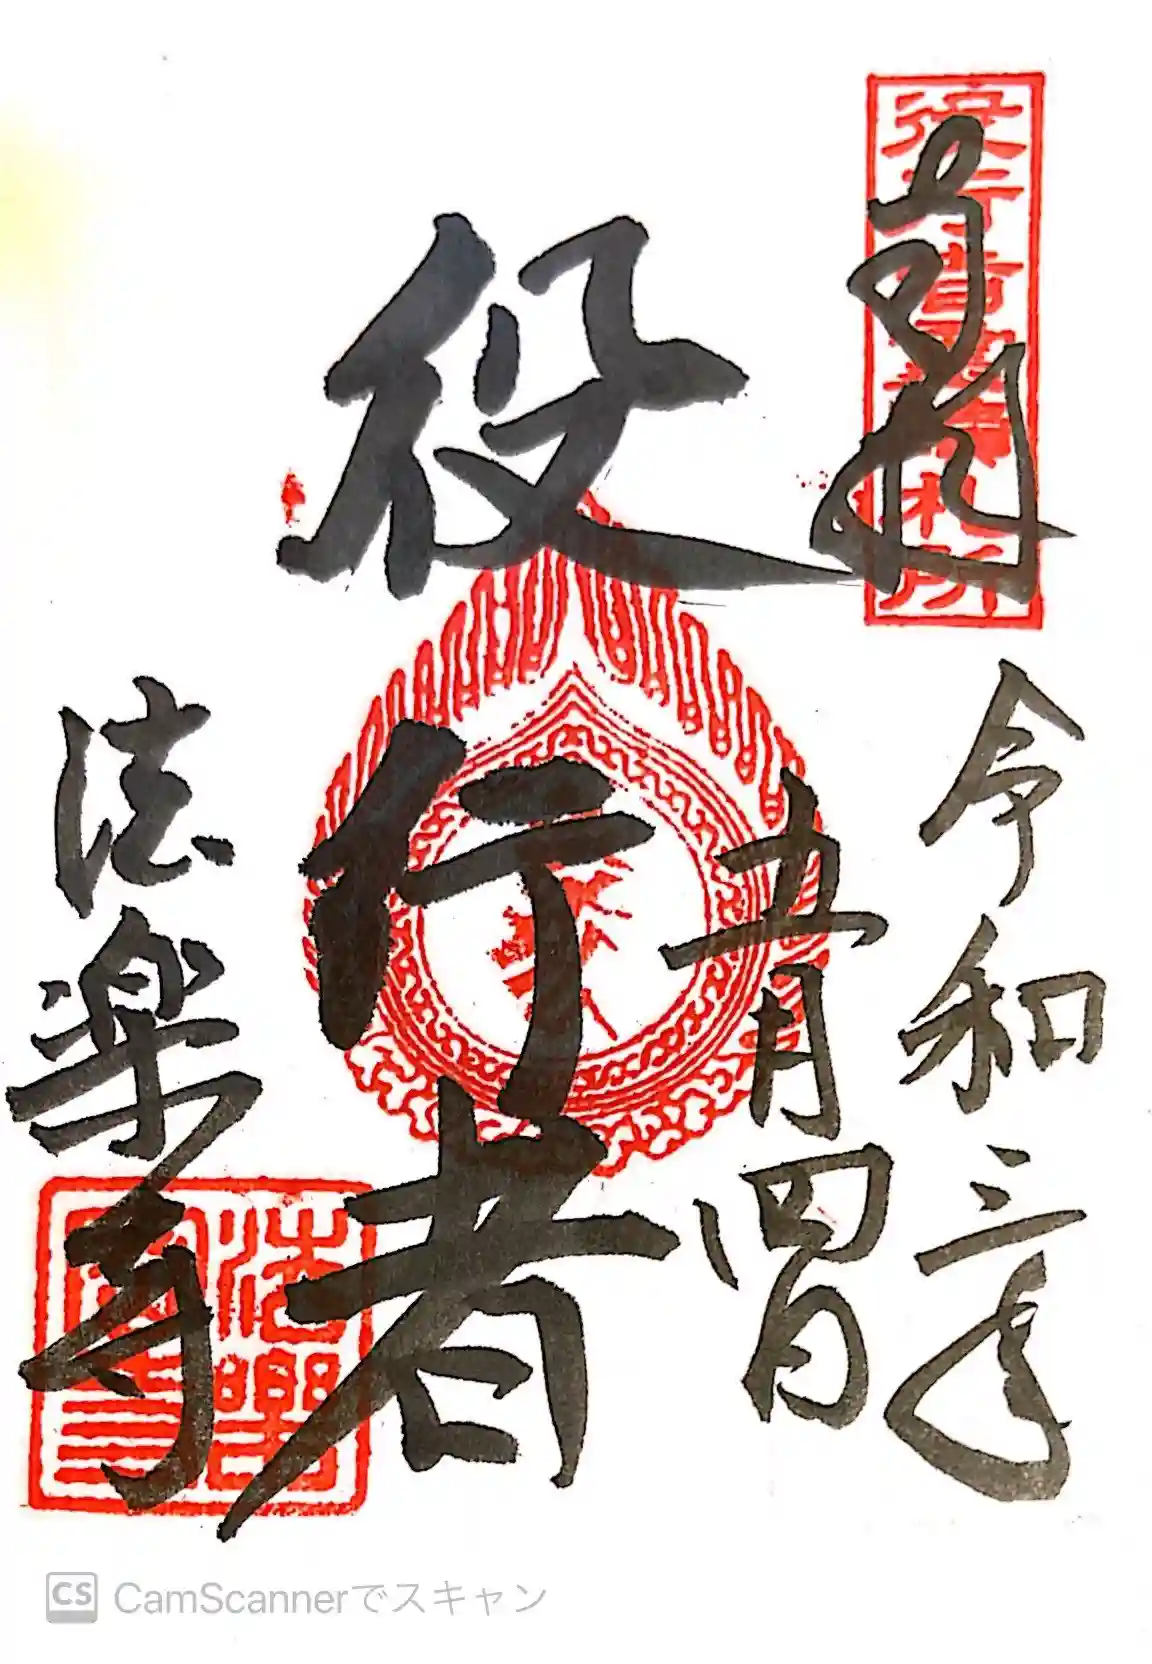 奉拝
役行者霊蹟札所
令和三年
五月四日
役行者
法楽寺
CamScannerでスキャン